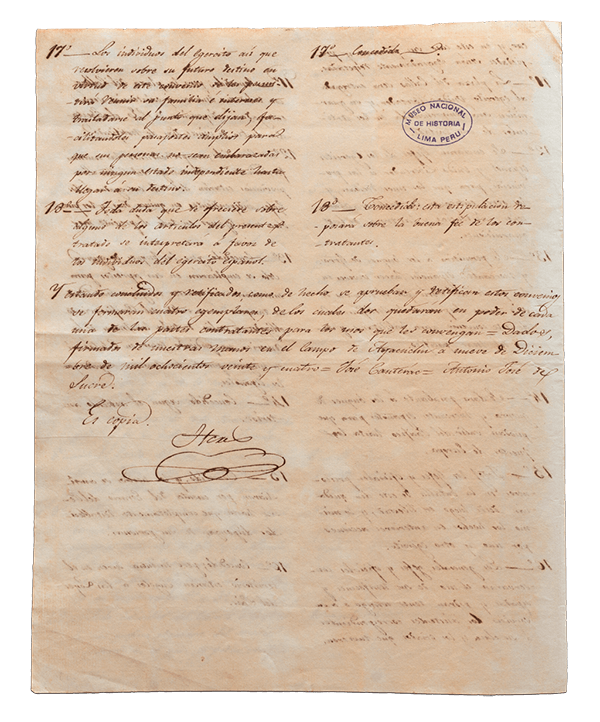 17ª — Los individuos del egercito asi que
resolvieren sobre su futuro destino en
virtud de este convenio se les permi-
tirá reunir sus familias e intereses y
trasladarse al punto que elijan, fa-
cilitandoles pasaportes amplios para
que sus personas no sean embarazadas
por ningun estado independiente hasta
llegar a su destino.
17ª — Concedido
MUSEO NACIONAL
DE HISTORIA
LIMA PERU
18ª — Toda duda que se ofreciere sobre
alguno de los articulos del presente
tratado se interpretará a favor de
los individuos del egercito español.
18ª — Concedido: esta estipulacion re-
posará sobre la buena fé de los con-
tratantes.
Y estando concluidos y ratificados, como de hecho se aprueban y ratifican estos convenios
se formarán cuatro egemplares, de los cuales dos quedarán en poder de cada
una de las partes contratantes para los usos que les convengan = Dados,
firmados de nuestras manos en el Campo de Ayacucho á nueve de Diciem-
bre de mil ochocientos veinte y cuatro = José Canterac = Antonio José de
Sucre.
Es copia.